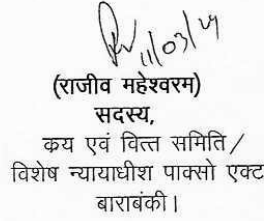 11/03/24
(राजीव महेश्वरम)
सदस्य,
कय एवं वित्त समिति/
विशेष न्यायाधीश पाक्सो एक्ट
बाराबंकी।